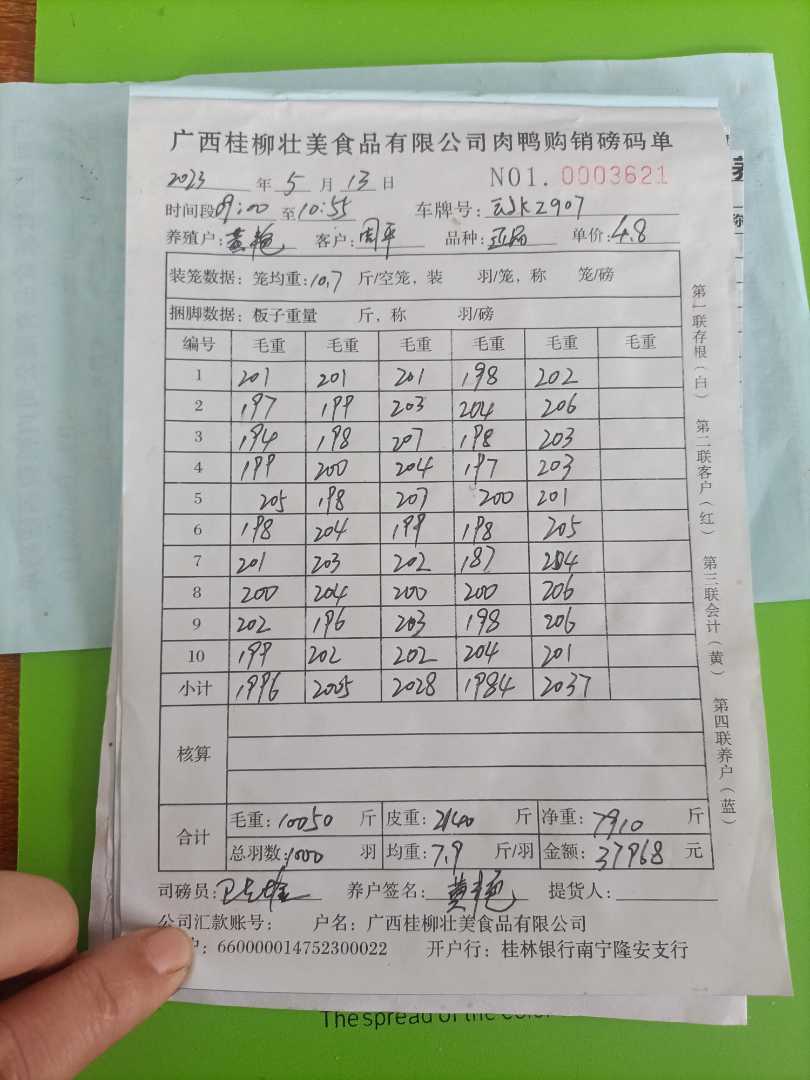 广西桂柳壮美食品有限公司肉鸭购销磅码单
2023 年 5 月 13 日 NO1. 0003621
时间段 09:00 至 10:55 车牌号: JK2907
养殖户: 黄艳 客户: 周平 品种: 单价: 4.8
装笼数据: 笼均重: 10.7 斤/空笼, 装 羽/笼, 称 笼/磅
捆脚数据: 板子重量 斤, 称 羽/磅
编号 毛重 毛重 毛重 毛重 毛重 毛重
1 201 201 201 198 202
2 197 199 203 204 206
3 194 198 207 198 203
4 199 200 204 197 203
5 205 198 207 200 201
6 198 204 199 198 205
7 201 203 202 187 204
8 200 204 200 200 206
9 202 196 203 198 206
10 199 202 202 204 201
小计 1996 2005 2028 1984 2037
核算
合计 毛重: 10050 斤 皮重: 2140 斤 净重: 7910 斤
总羽数: 1000 羽 均重: 7.9 斤/羽 金额: 37968 元
司磅员: 养户签名: 黄艳 提货人:
公司汇款账号: 户名: 广西桂柳壮美食品有限公司
户: 660000014752300022 开户行: 桂林银行南宁隆安支行
第一联存根(白) 第二联客户(红) 第三联会计(黄) 第四联养户(蓝)
The spread of the